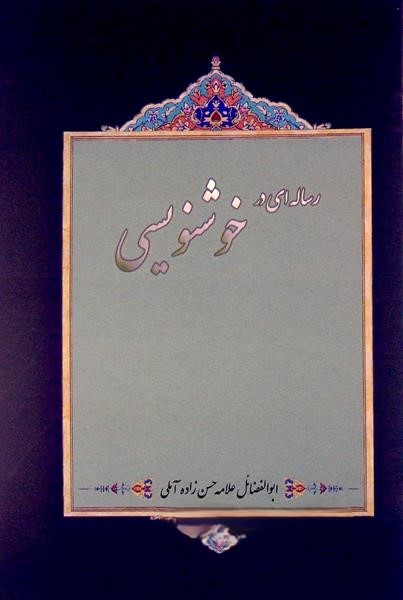 رساله ای در
خوشنویسی
ابوالفضائل علامه حسن زاده آملی